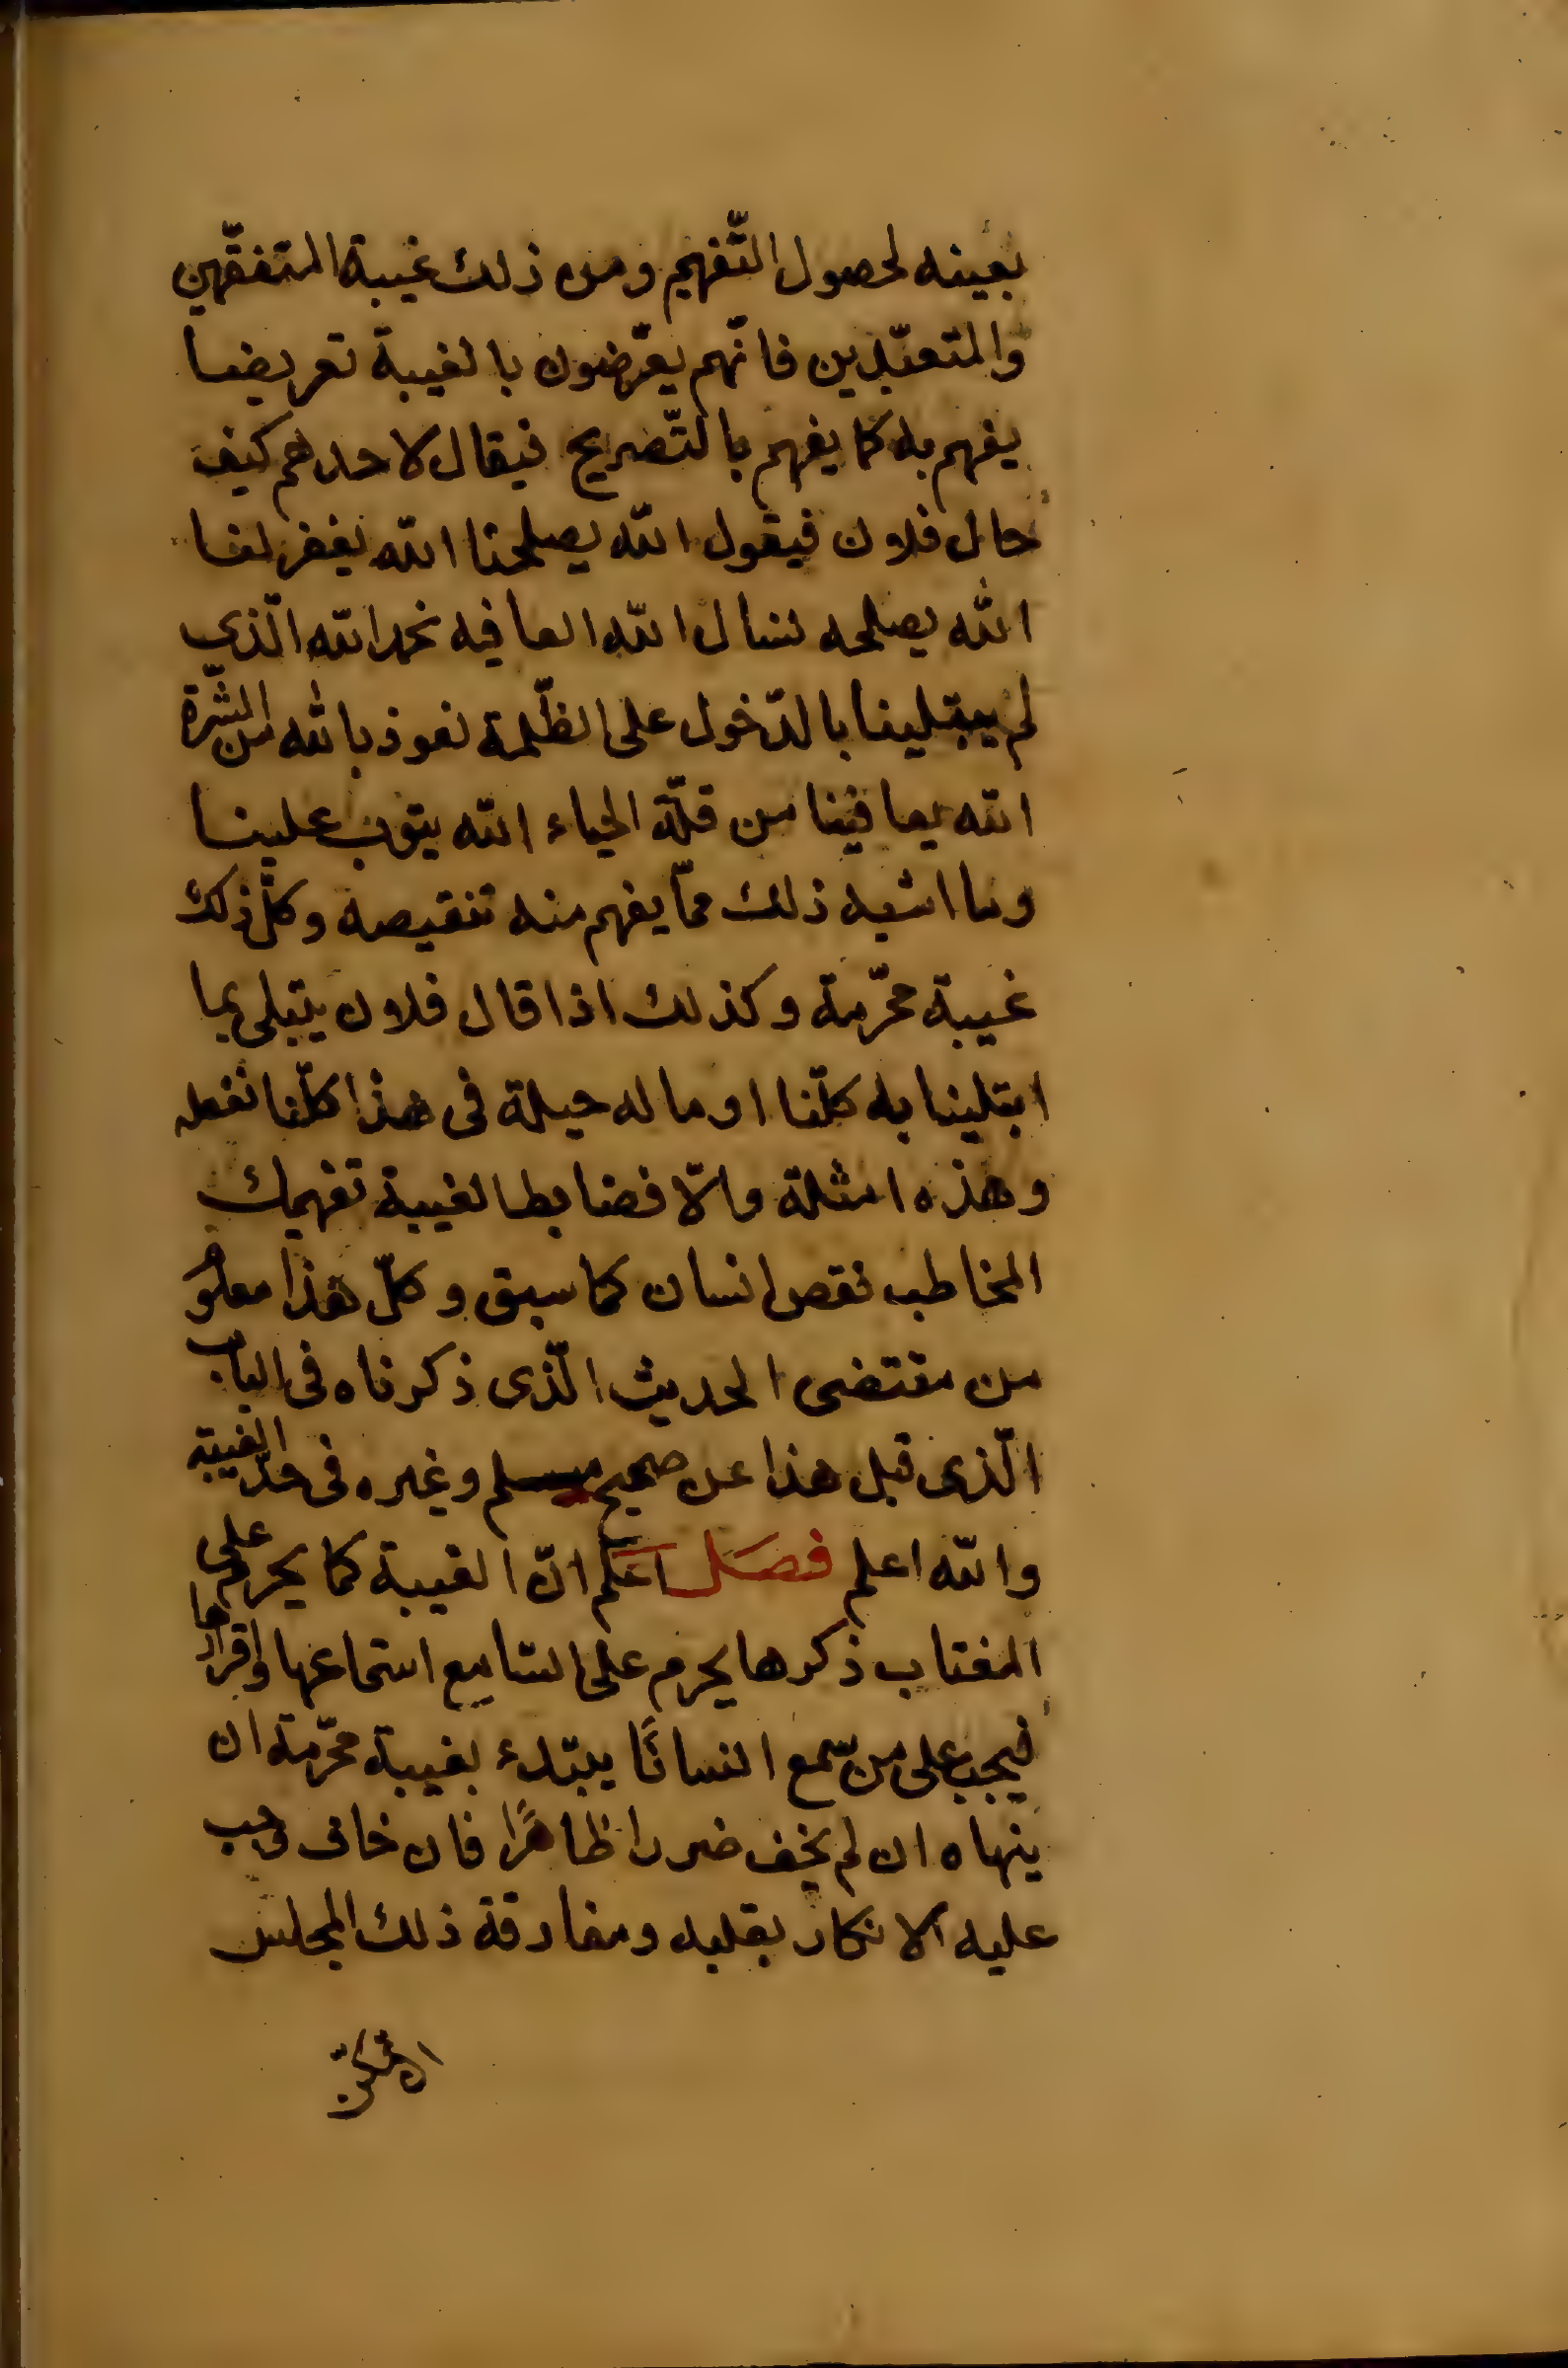 بعينه لحصول التّفهيم ومن ذلك غيبة المتفقّهين
والمتعبّدين فانّهم يعرّضون بالغيبة تعريضا
يفهم به كما يفهم بالتّصريح فيقال لاحدهم كيف
حال فلان فيقول الله يصلحنا الله يغفر لنا
الله يصلحه نسال الله العافيه نحمد الله الّذى
لم يبتلينا بالدّخول على الظّلمة نعوذ بالله من الشّرة
الله يعافينا من قلّة الحياء الله يتوب علينا
وما اشبه ذلك ممّا يفهم منه تنقيصه وكلّ ذلك
غيبة محرّمة وكذلك اذا قال فلان يتبلى بما
ابتلينا به كلّنا او ماله حيلة فى هذا كلّنا نفعله
وهذه امثلة والّا فضابط الغيبة تفهيمك
المخاطب نقص انسان كما سبق وكلّ هذا معلوم
من مقتضى الحديث الّذى ذكرناه فى الباب
الّذى قبل هذا عن صحيح مسلم وغيره فى حدّ الغيبة
والله اعلم فصل اعلم انّ الغيبة كما يحرم على
المغتاب ذكرها يحرم على السّامع استماعها واقرارها
فيجب على من سمع انسانًا يبتدء بغيبة محرّمة ان
ينهاه ان لم يخف ضررا ظاهرًا فان خاف وجب
عليه الانكار بقلبه ومفارقة ذلك المجلس